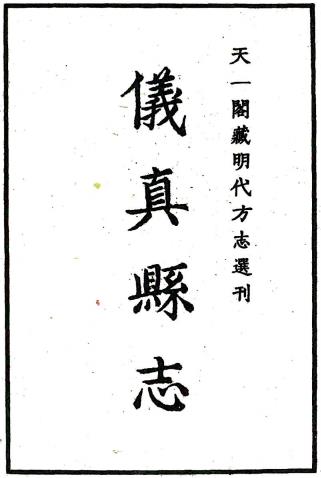 天一閣藏明代方志選刊
儀真縣志